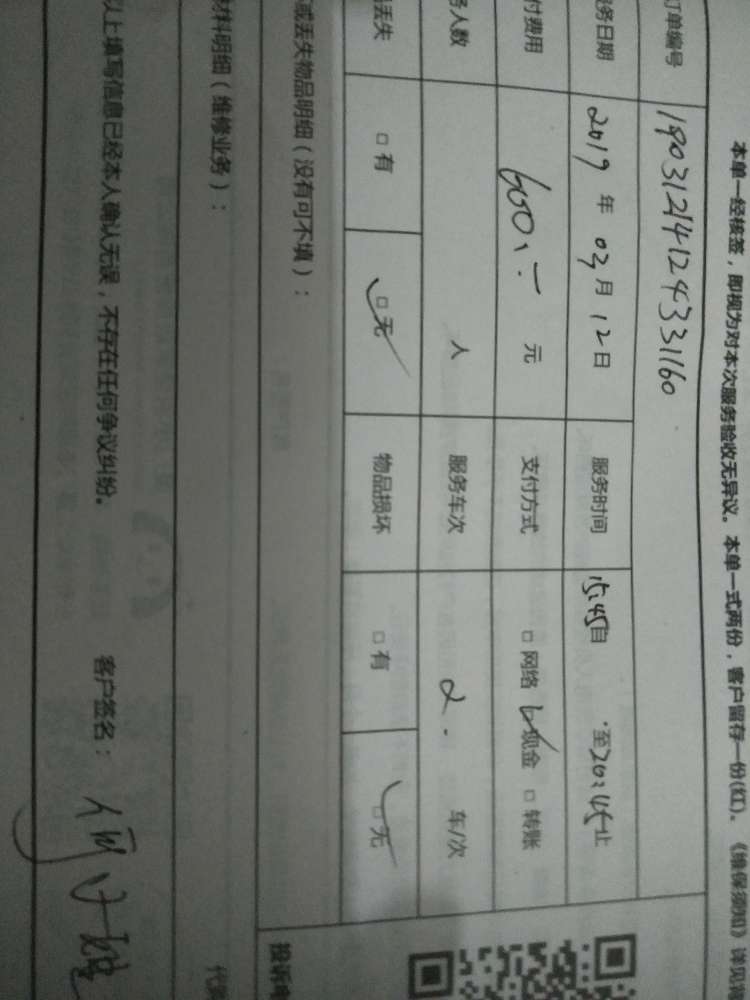 本单一经核签，即视为对本次服务验收无异议。本单一式两份，客户留存一份(红)。《维保须知》详见
订单编号 19031214124331160
务日期 2019 年 03 月 12 日 服务时间 15:45自 至20:45止
付费用 600.- 元 支付方式 □ 网络 ✓现金 □ 转账
务人数 人 服务车次 2. 车/次
丢失 □ 有 ✓□ 无 物品损坏 □ 有 ✓□ 无
或丢失物品明细（没有可不填）：
材料明细（维修业务）：
投诉电
代
以上填写信息已经本人确认无误，不存在任何争议纠纷。 客户签名： 何